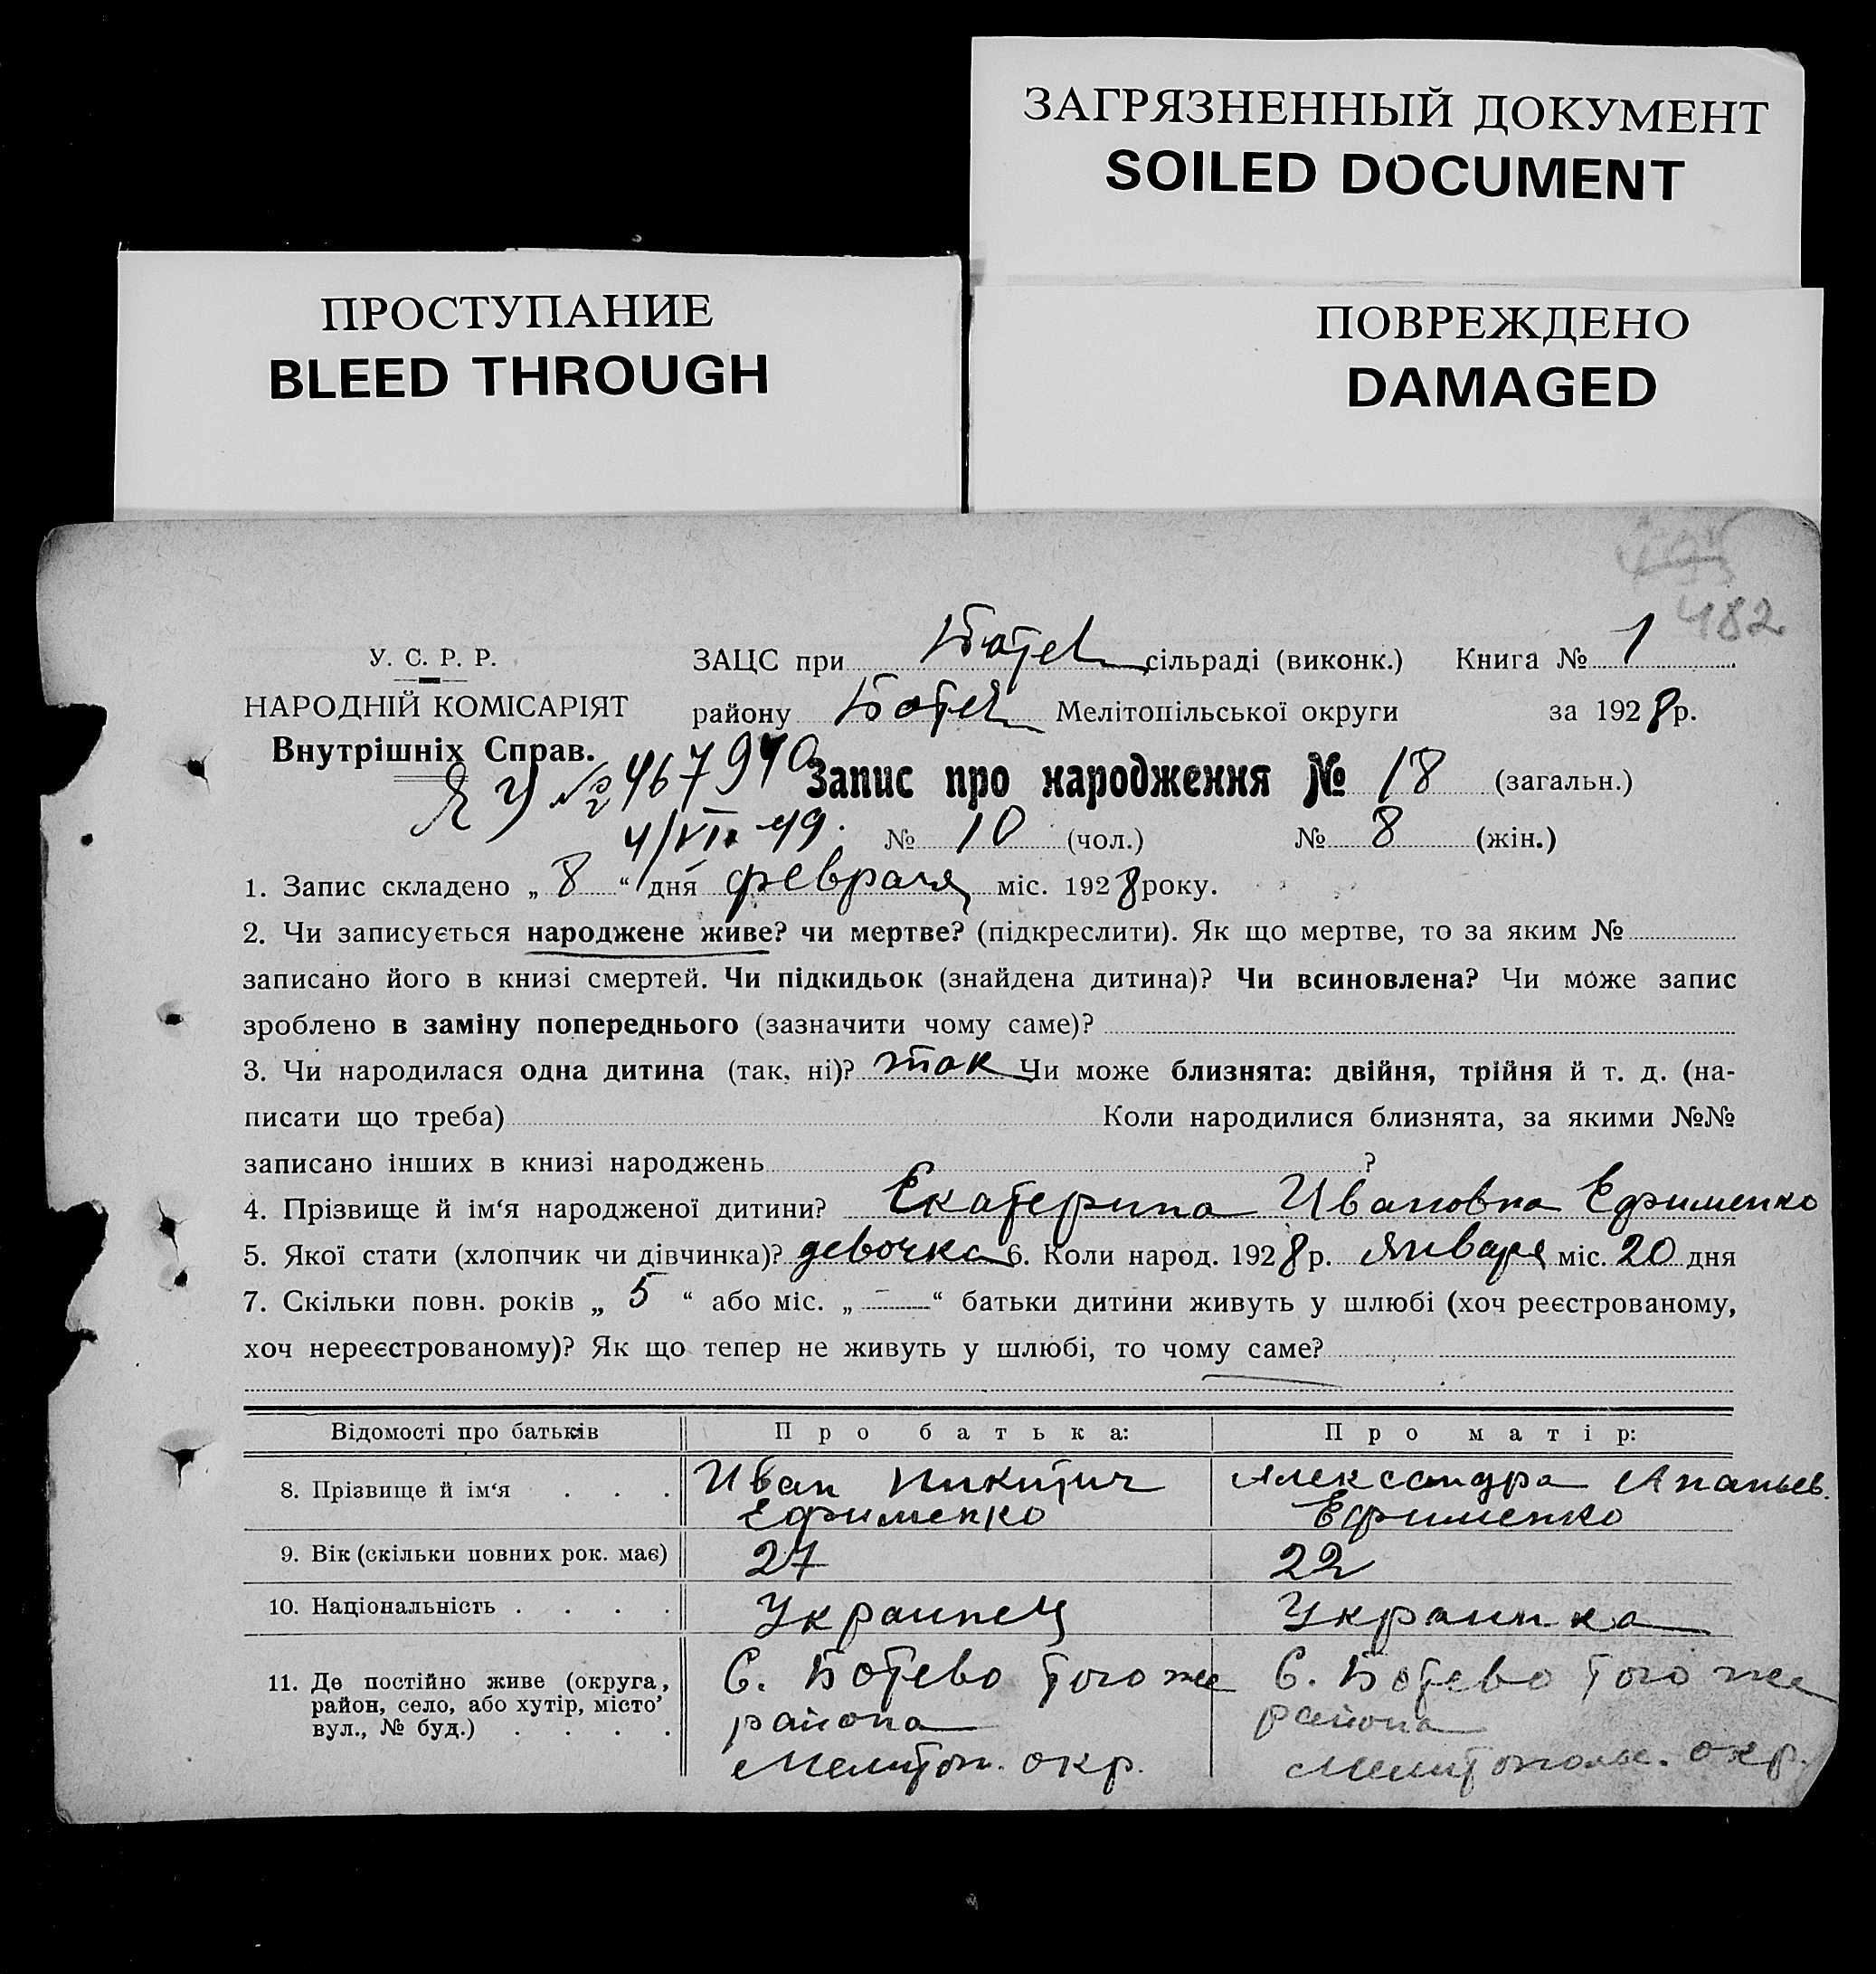 ЗАГРЯЗНЕННЫЙ ДОКУМЕНТ
SOILED DOCUMENT
ПРОСТУПАНИЕ
BLEED THROUGH
ПОВРЕЖДЕНО
DAMAGED
482
У. С. Р. Р.
НАРОДНІЙ КОМІСАРІЯТ
Внутрішніх Справ.
ЗАЦС при Ботев сільраді (виконк.) Книга № 1
району Ботев Мелітопільської округи за 1928 р.
№ 467940
4/VI 49.
Запис про народження № 18 (загальн.)
№ 10 (чол.) № 8 (жін.)
1. Запис складено „ 8 “ дня февраля міс. 1928 року.
2. Чи записується народжене живе? чи мертве? (підкреслити). Як що мертве, то за яким №
записано його в книзі смертей. Чи підкидьок (знайдена дитина)? Чи всиновлена? Чи може запис
зроблено в заміну попереднього (зазначити чому саме)?
3. Чи народилася одна дитина (так, ні)? так Чи може близнята: двійня, трійня й т. д. (на-
писати що треба) Коли народилися близнята, за якими №№
записано інших в книзі народжень ?
4. Прізвище й ім‘я народженої дитини? Екатерина Ивановна Ефименко
5. Якої стати (хлопчик чи дівчинка)? девочка 6. Коли народ. 1928 р. Января міс. 20 дня
7. Скільки повн. років „ 5 “ або міс. „ - “ батьки дитини живуть у шлюбі (хоч реєстрованому,
хоч нереєстрованому)? Як що тепер не живуть у шлюбі, то чому саме?
Відомості про батьків Про батька: Про матір:
8. Прізвище й ім‘я . . . Иван Никитич Александра Ананьев.
Ефименко Ефименко
9. Вік (скільки повних рок. має) 27 22
10. Національність . . . . Украинец Украинка
11. Де постійно живе (округа, С. Ботево того же С. Ботево того же
район, село, або хутір, місто’ района района
вул., № буд.) . . . . Мелитоп. окр. Мелитополь. окр.